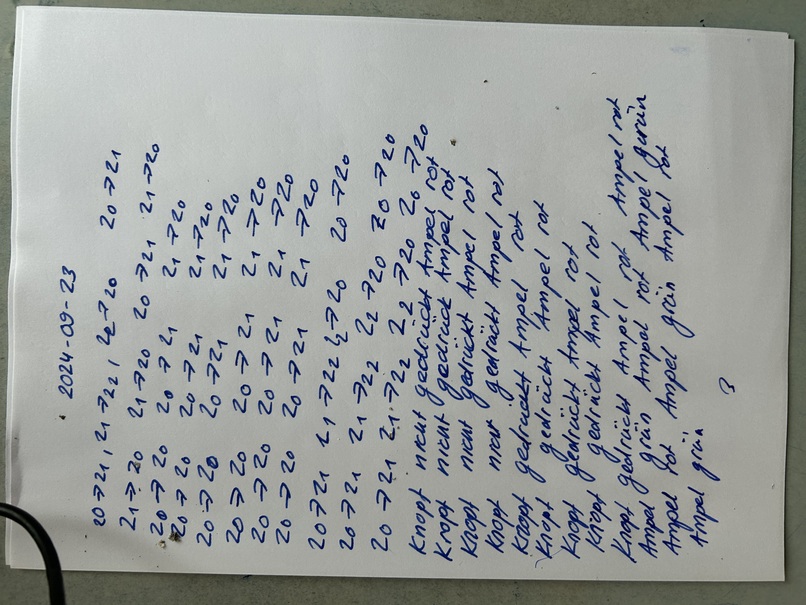 2024-09-23
z0 → z1, z1 → z2, z2 → z0 z0 → z1
z1 → z0 z1 → z0 z0 → z1 z1 → z0
z0 → z0 z0 → z1 z1 → z0
z0 → z0 z0 → z1 z1 → z0
z0 → z0 z0 → z1 z1 → z0
z0 → z0 z0 → z1 z1 → z0
z0 → z0 z0 → z1 z1 → z0
z0 → z0 z0 → z1 z1 → z0
z0 → z1 z1 → z2 z2 → z0 z0 → z0
z0 → z1 z1 → z2 z2 → z0 z0 → z0
z0 → z1 z1 → z2 z2 → z0 z0 → z0
Knopf nicht gedrückt Ampel rot
Knopf nicht gedrück Ampel rot
Knopf nicht gedrückt Ampel rot
Knopf nicht gedrückt Ampel rot
Knopf gedrückt Ampel rot
Knopf gedrückt Ampel rot
Knopf gedrückt Ampel rot
Knopf gedrückt Ampel rot
Knopf gedrückt Ampel rot Ampel rot
Ampel grün Ampel rot Ampel grün
Ampel rot Ampel grün Ampel rot
Ampel grün
3